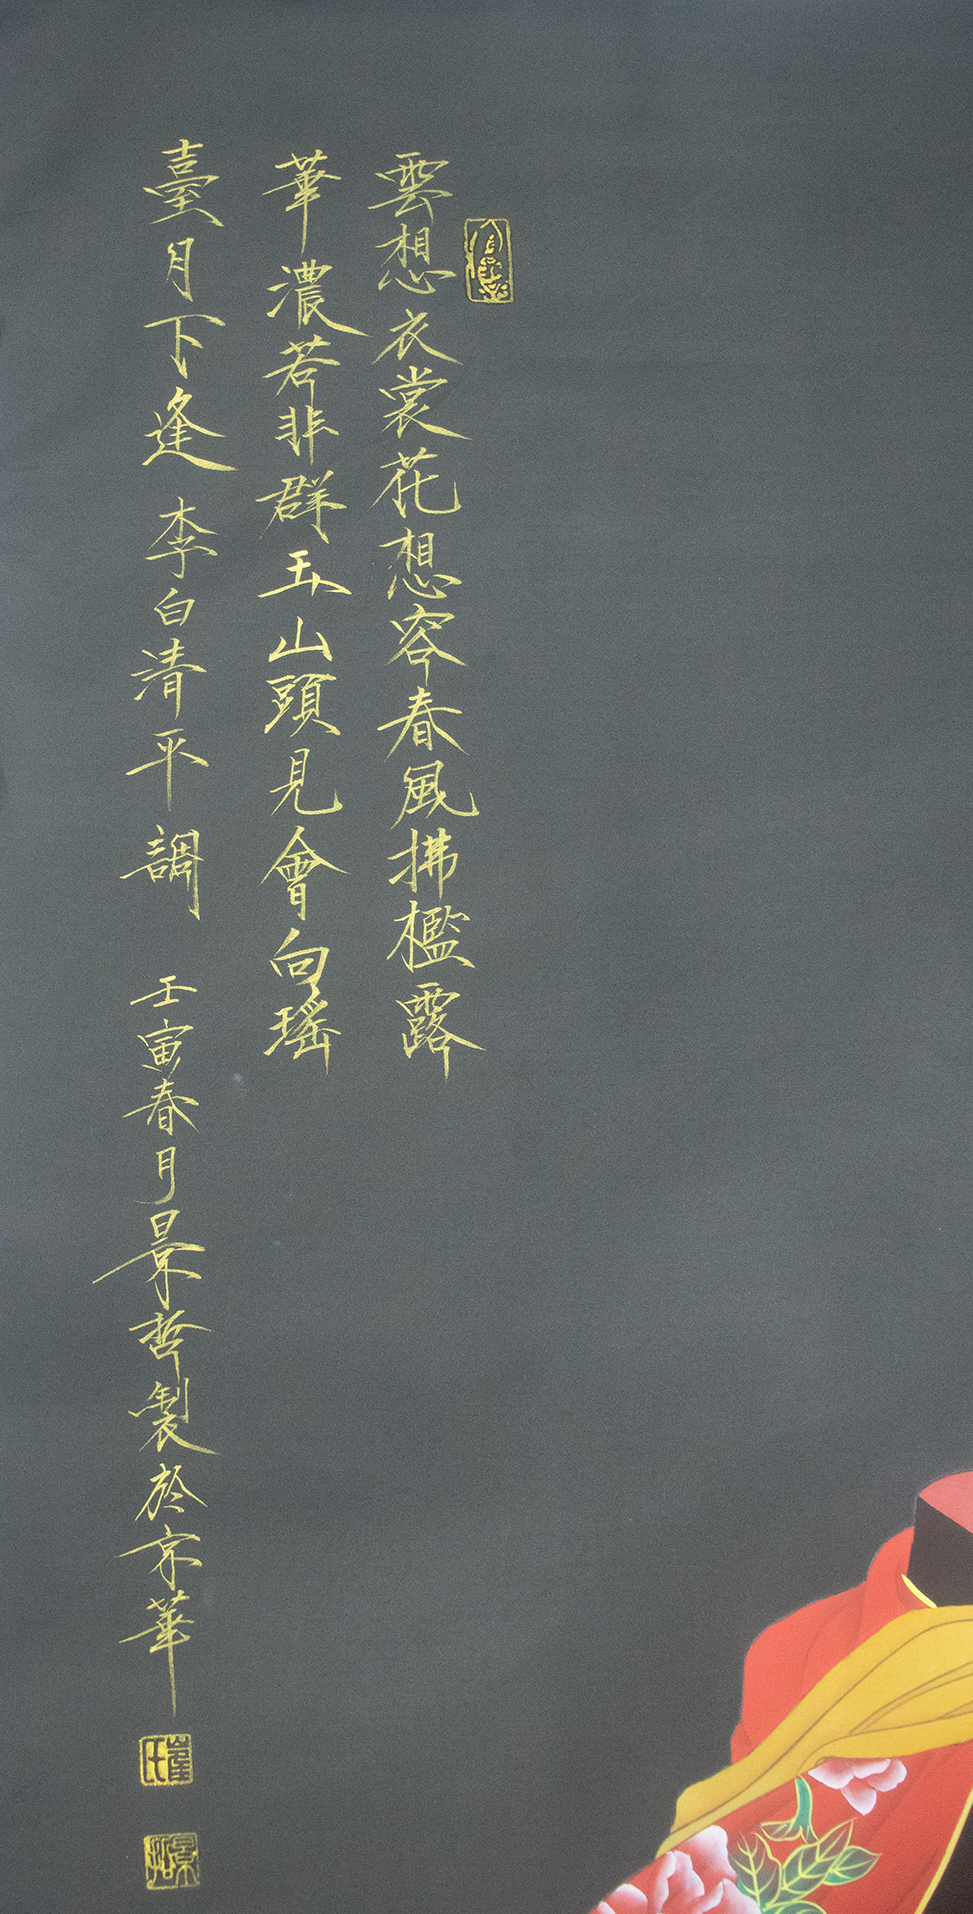 雲想衣裳花想容春風拂檻露
華濃若非群玉山頭見會向瑤
臺月下逢 李白清平調 壬寅春月景哲製於京華
崔氏
景哲